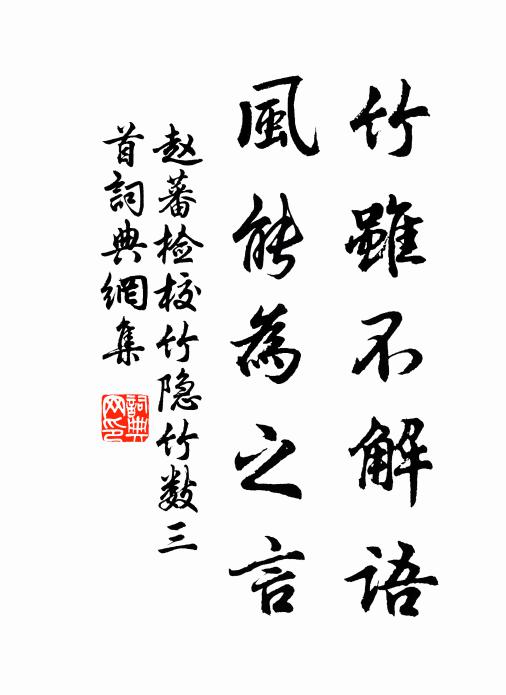 竹雖不解語
風能為之言
赵蕃检校竹隐竹数三
首詞典網集
詞典
网印